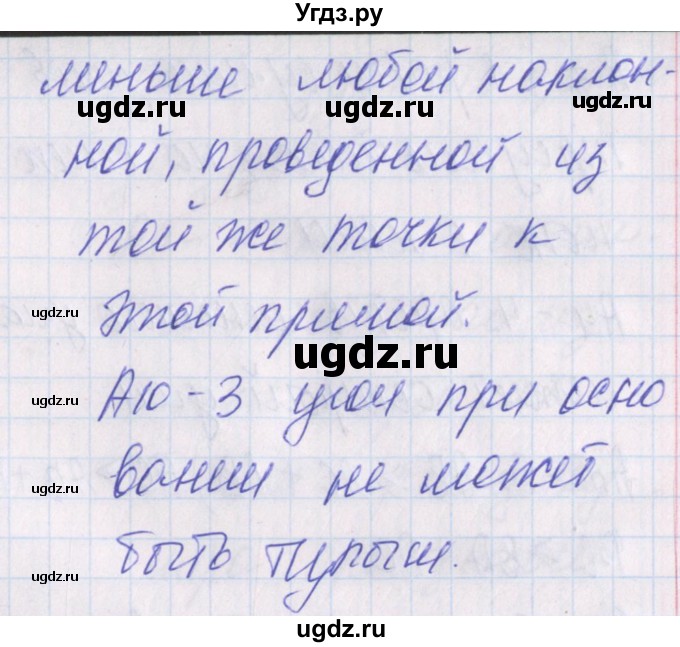 Угдз.ру
меньше любой наклон-
ugdz.ru ugdz.ru ugdz.ru
ной, проведенной из
той же точки к
ugdz.ru этой прямой.
ugdz.ru
ugdz.ru А10-3 угол при осно
ugdz.ru вании не может
ugdz.ru быть тупым.
ugdz.ru